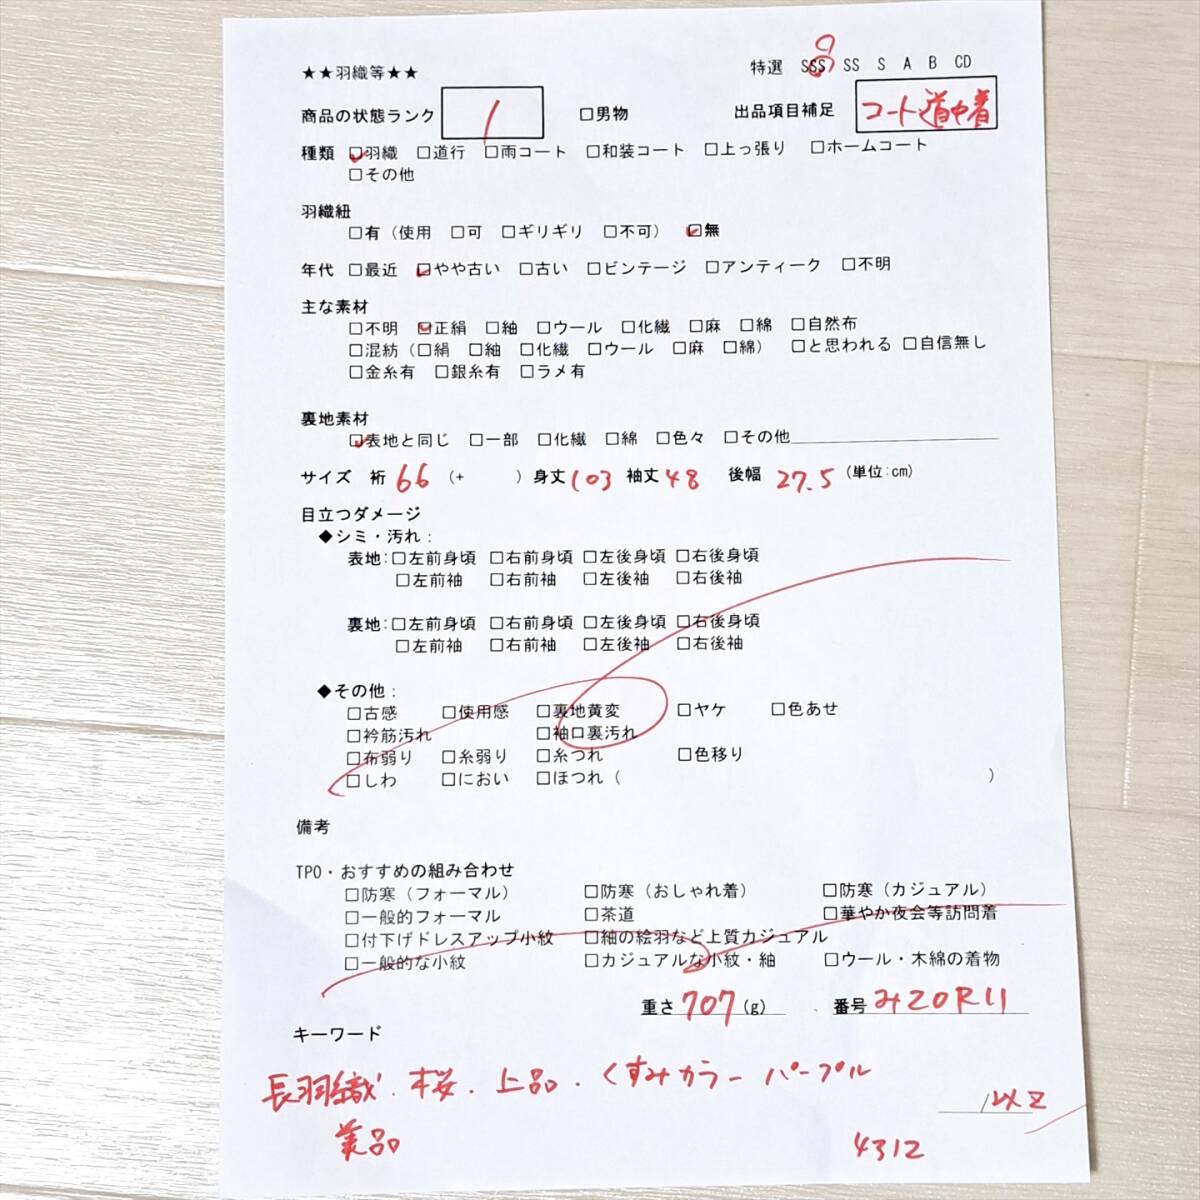 ★★羽織等★★
特選 SSS SS S A B CD
商品の状態ランク 1 □男物 出品項目補足 コート道中着
種類 □羽織 □道行 □雨コート □和装コート □上っ張り □ホームコート
□その他
羽織紐
□有（使用 □可 □ギリギリ □不可） □無
年代 □最近 □やや古い □古い □ビンテージ □アンティーク □不明
主な素材
□不明 □正絹 □紬 □ウール □化繊 □麻 □綿 □自然布
□混紡（□絹 □紬 □化繊 □ウール □麻 □綿） □と思われる □自信無し
□金糸有 □銀糸有 □ラメ有
裏地素材
□表地と同じ □一部 □化繊 □綿 □色々 □その他
サイズ 裄 66 （+ ）身丈 103 袖丈 48 後幅 27.5 （単位:cm）
目立つダメージ
◆シミ・汚れ：
表地:□左前身頃 □右前身頃 □左後身頃 □右後身頃
□左前袖 □右前袖 □左後袖 □右後袖
裏地:□左前身頃 □右前身頃 □左後身頃 □右後身頃
□左前袖 □右前袖 □左後袖 □右後袖
◆その他：
□古感 □使用感 □裏地黄変 □ヤケ □色あせ
□衿筋汚れ □袖口裏汚れ
□布弱り □糸弱り □糸つれ □色移り
□しわ □におい □ほつれ（ ）
備考
TPO・おすすめの組み合わせ
□防寒（フォーマル） □防寒（おしゃれ着） □防寒（カジュアル）
□一般的フォーマル □茶道 □華やか夜会等訪問着
□付下げドレスアップ小紋 □紬の絵羽など上質カジュアル
□一般的な小紋 □カジュアルな小紋・紬 □ウール・木綿の着物
重さ 707 (g) 番号 み20R11
キーワード
長羽織．桜．上品．くすみカラー パープル
美品
4312